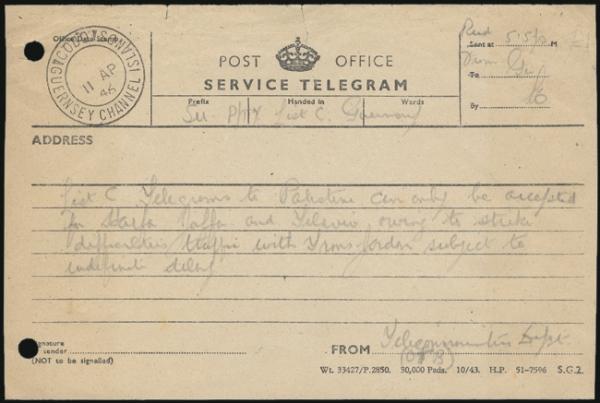 Office Date Stamp
GUERNSEY CHANNEL ISLANDS
11 AP
46
POST OFFICE
SERVICE TELEGRAM
Prefix Handed in Words
List C.
Recd
Sent at 5.5 M
From
To
By
ADDRESS
List C Telegrams to Palestine can only be accepted
for Haifa Jaffa and Telaviv owing to strike
difficulties traffic with Trans-Jordan subject to
indefinite delay
Signature
of sender
(NOT to be signalled)
FROM Telecommunications Dept.
Wt. 33427/P.2850. 30,000 Pads. 10/43. H.P. 51-7596 S.G.2.